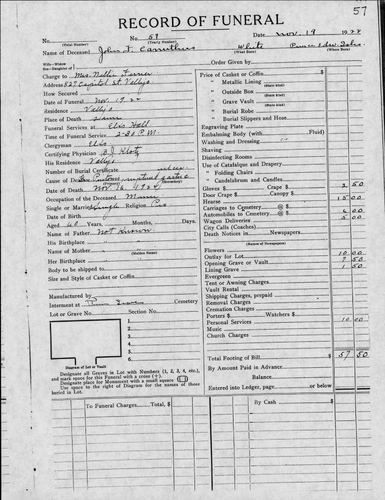 57
RECORD OF FUNERAL
No. No. 57 Date Nov. 19 1922
(Total Number) (Yearly Number)
Name of Deceased John J. Carruthers White
(What Race) (Where Born)
Wife-Widow
Son-Daughter of Order Given by
Charge to Mrs. Nellie
Address 827 Capitol St. Vallejo
How Secured
Date of Funeral Nov. 19 22
Residence Vallejo
Place of Death
Funeral Services at Elks Hall
Time of Funeral Service 2:30 P.M.
Clergyman Elks
Certifying Physician B.J. Klotz
His Residence Vallejo
Number of Burial Certificate
Cause of Death
(Primary) (Secondary)
Date of Death Nov. 16
Occupation of the Deceased
Single or Married Single Religion
Date of Birth
Aged 60 Years, Months, Days
Name of Father Not Known
His Birthplace
Name of Mother
(Maiden Name)
Her Birthplace
Body to be shipped to
Size and Style of Casket or Coffin
Manufactured by
Interment at Cemetery
Lot or Grave No. Section No.
Diagram of Lot or Vault
Designate all Graves in Lot with Numbers (1, 2, 3, 4, etc.),
and mark space for this Funeral with a cross (+).
Designate place for Monument with a small square
Use space to the right of Diagram for the names of those
buried in Lot.
Price of Casket or Coffin
" Metallic Lining
(State Kind)
" Outside Box
(State Kind)
" Grave Vault
(State Kind)
" Burial Robe
" Burial Slippers and Hose
Engraving Plate
Embalming Body (with Fluid)
Washing and Dressing
Shaving
Disinfecting Rooms
Use of Catafalque and Drapery
" Folding Chairs
" Candelabrum and Candles
Gloves $ Crape $ 2 50
Door Crape Canopy $
Hearse 15 00
Carriages to Cemetery @ $
Automobiles to Cemetery @ $ 6 00
Wagon Deliveries 5 00
City Calls (Coaches)
Death Notices in Newspapers
(Names of Newspapers)
Flowers 10 00
Outlay for Lot
Opening Grave or Vault 7 50
Lining Grave 1 50
Evergreen
Tent or Awning Charges
Vault Rental
Shipping Charges, prepaid
Removal Charges
Cremation Charges
Porters $ Watchers $
Personal Services 10 00
Music
Church Charges
Total Footing of Bill $ 57 50
By Amount Paid in Advance
Balance
Entered into Ledger, page or below
To Funeral Charges, Total, $ By Cash $